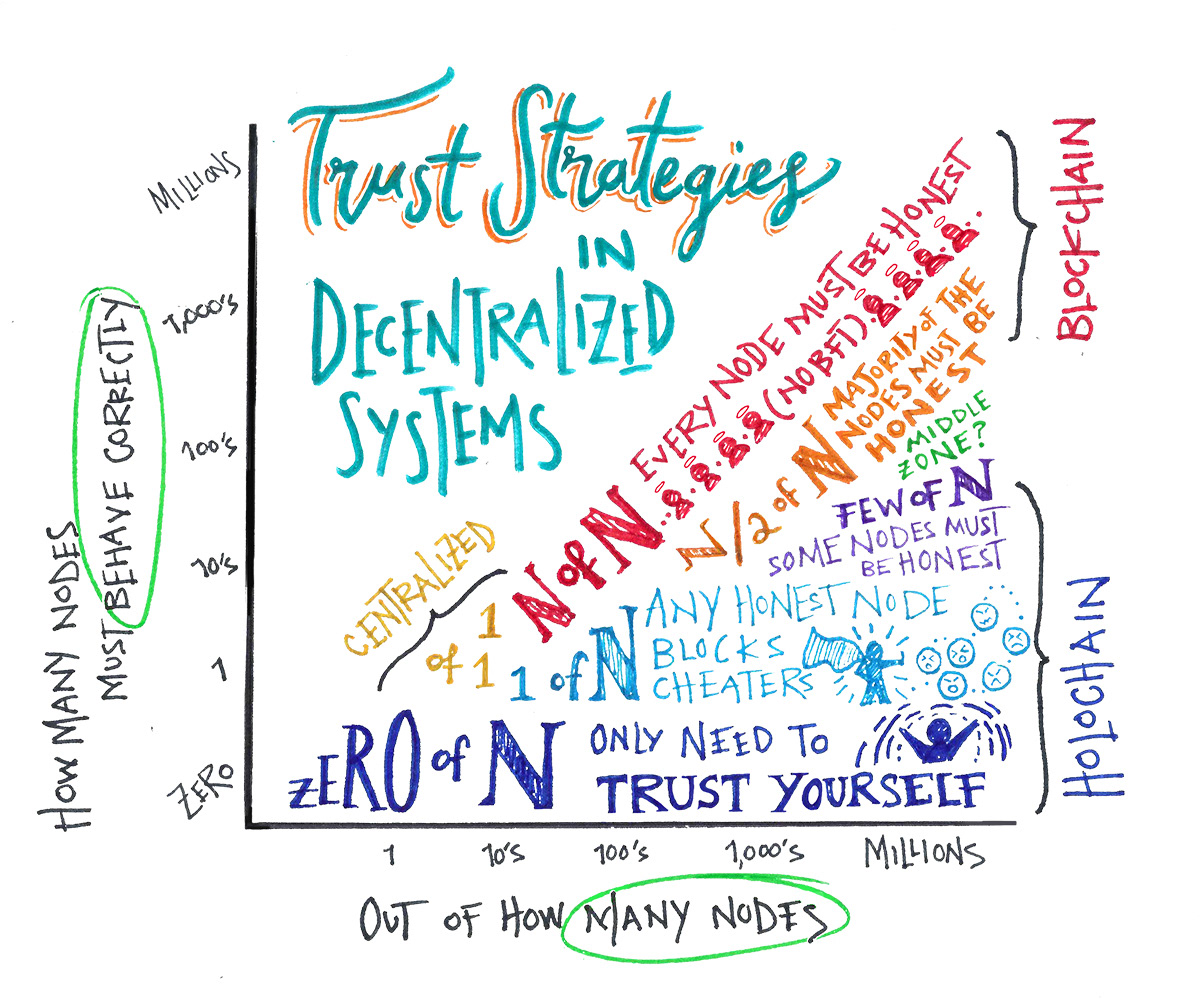 Trust Strategies
IN
DECENTRALIZED
SYSTEMS
HOW MANY NODES
MUST BEHAVE CORRECTLY
MILLIONS
1,000's
100's
10's
1
ZERO
CENTRALIZED
1
of 1
N of N
EVERY NODE MUST BE HONEST
(NO BFT)
N/2 of N
MAJORITY of THE
NODES MUST BE
HONEST
MIDDLE
ZONE?
FEW of N
SOME NODES MUST
BE HONEST
1 of N
ANY HONEST NODE
BLOCKS
CHEATERS
ZERO of N
ONLY NEED TO
TRUST YOURSELF
BLOCKCHAIN
HOLOCHAIN
1
10's
100's
1,000's
MILLIONS
OUT OF HOW MANY NODES